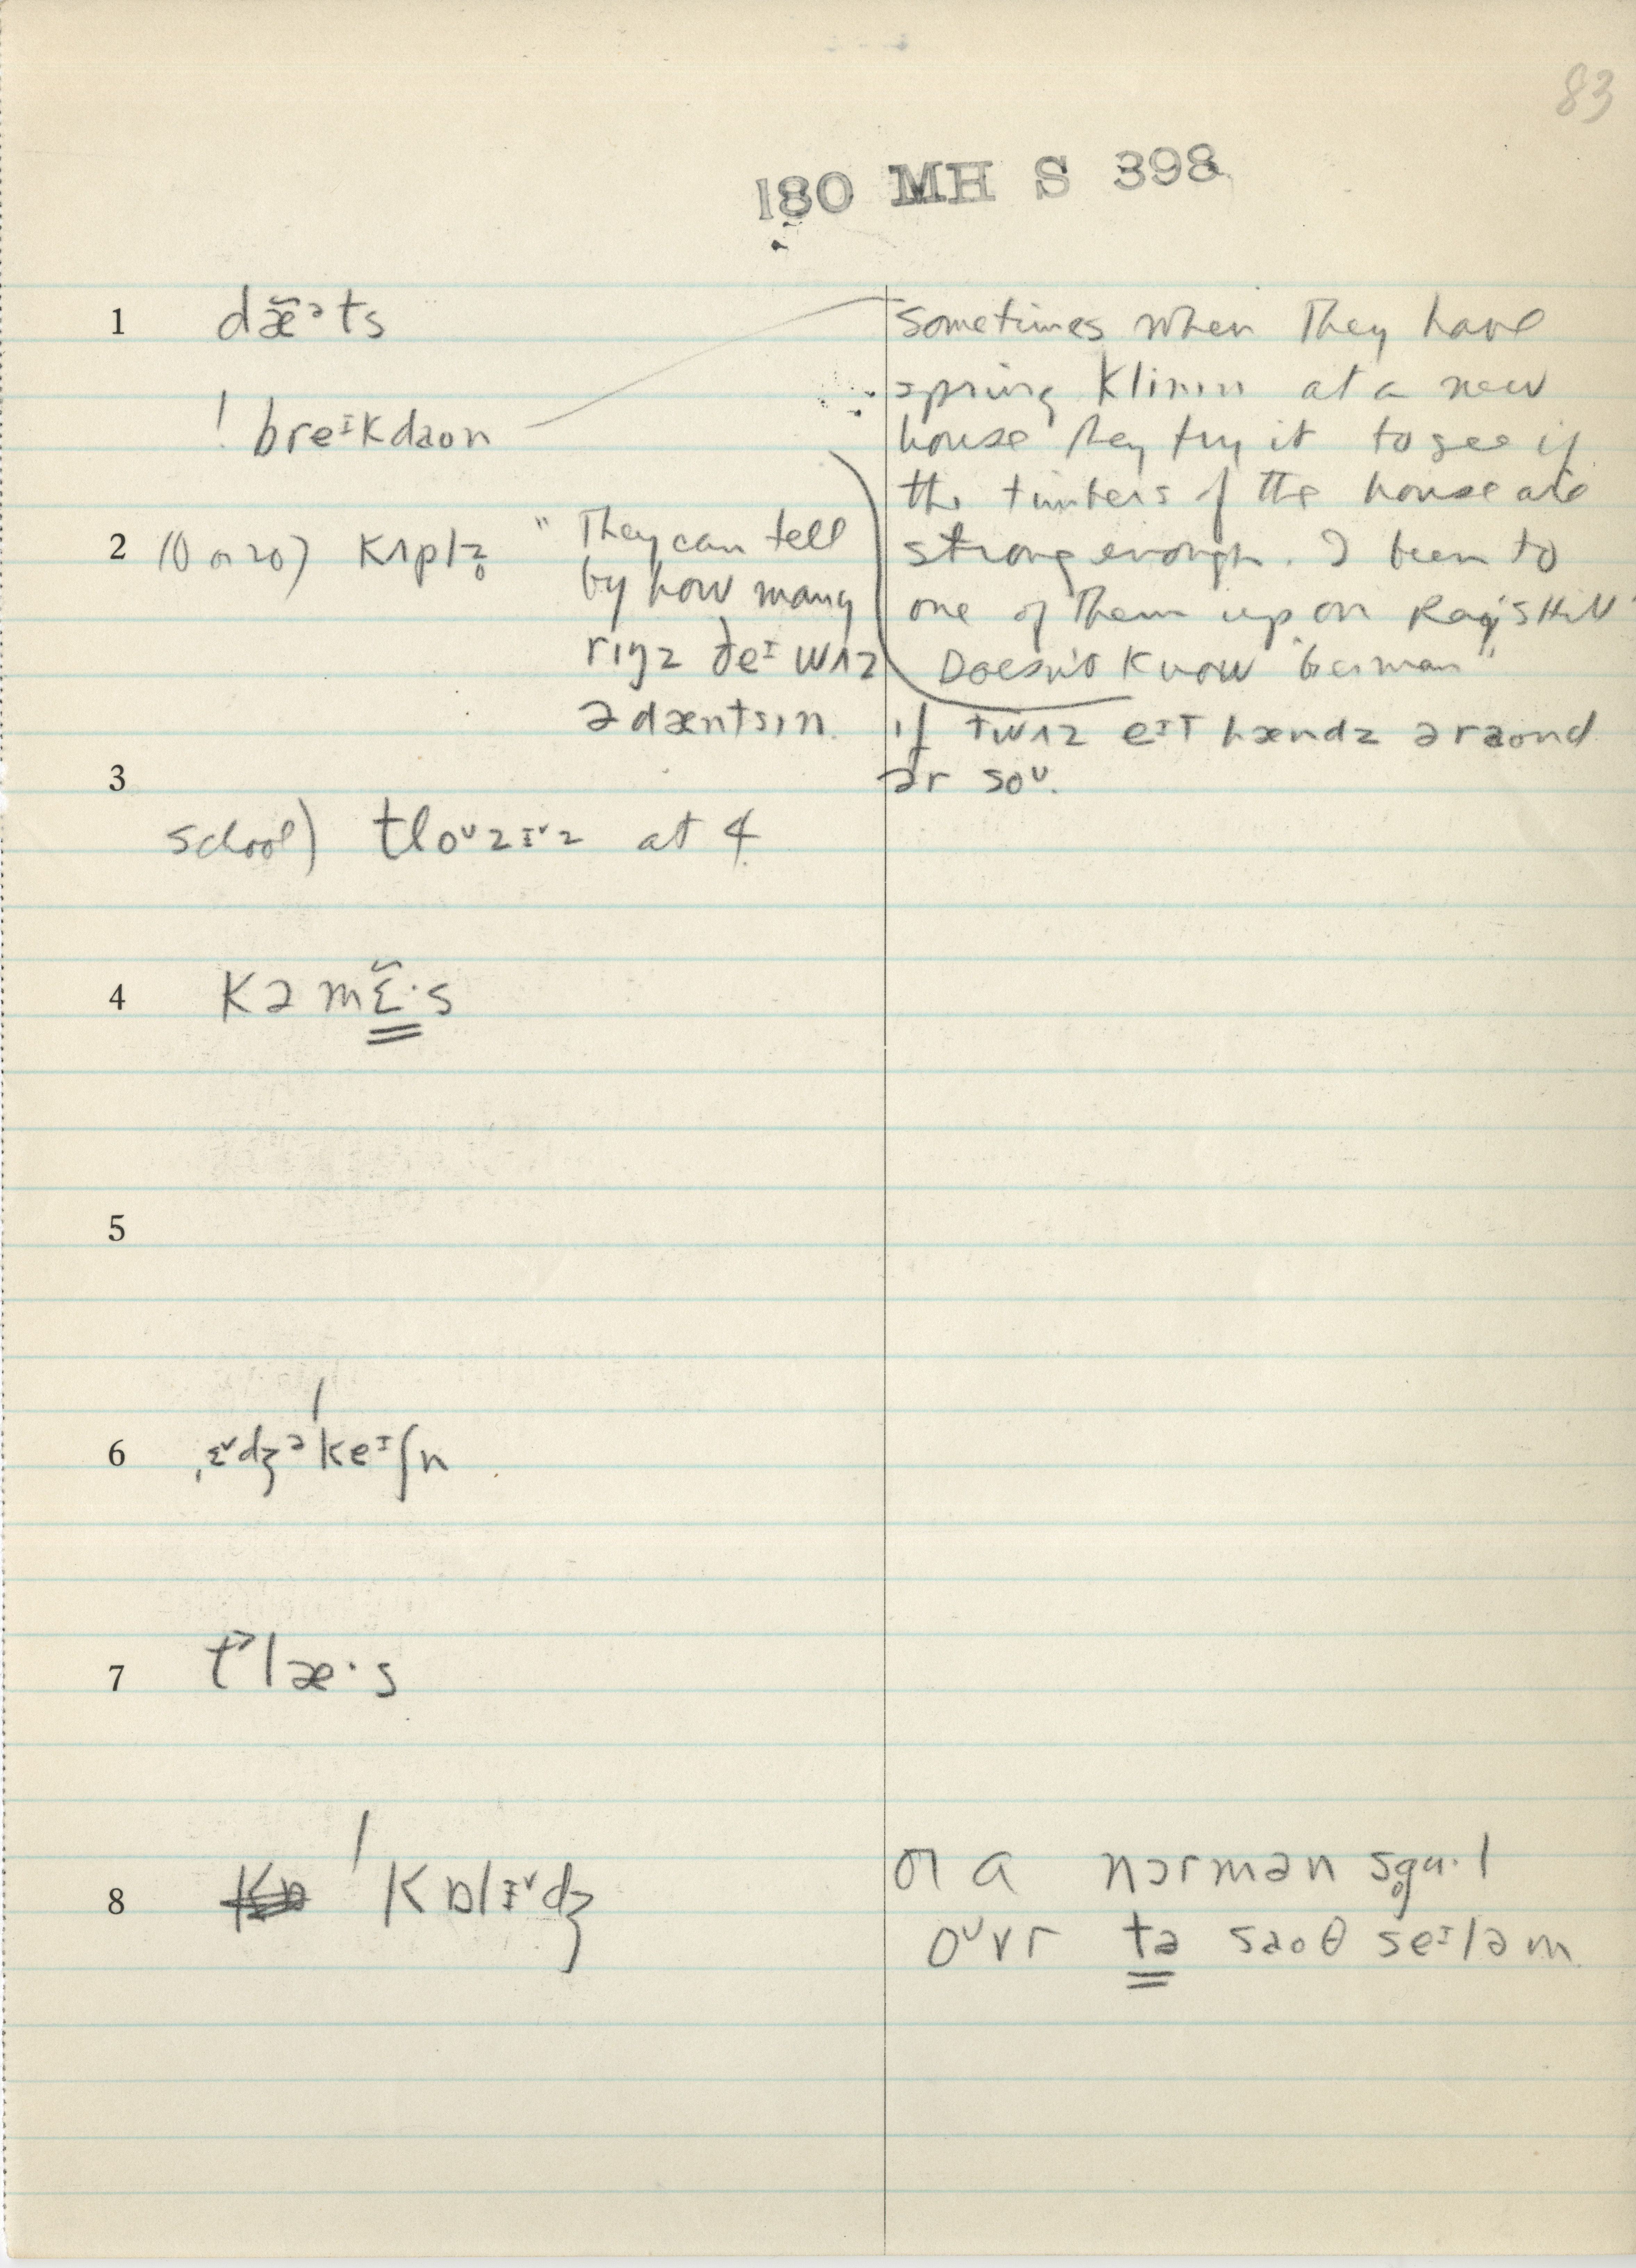 83
180 MH S 398
1 dæ̃ᵊts
! breᶦkdaon
sometimes when they have
spring klinin at a new
house they try it to see if
the timbers of the house are
strong enough. I been to
one of them up on Ray's Hill
Doesn't know "German"
2 10 or 20) kʌplz̥
"They can tell
by how many
rɪŋz ðeᶦ wʌz
ə dæntsɪn.
if twʌz eᶦt hændz əraond
ər soᵁ.
3
school) tloᵁzɪᵛz at 4
4 kəmɛ̃·s
5
6 ˌɛᵛdʒəˈkeᶦʃn
7 t˃læ·s
8 ˈkɒlɪᵛdʒ
or a nɔrmən sgu·l
oᵁvr tə saoθ seᶦləm